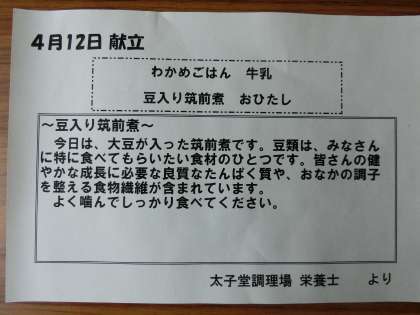 4月12日 献立
わかめごはん　牛乳
豆入り筑前煮　おひたし
～豆入り筑前煮～
今日は、大豆が入った筑前煮です。豆類は、みなさん
に特に食べてもらいたい食材のひとつです。皆さんの健
やかな成長に必要な良質なたんぱく質や、おなかの調子
を整える食物繊維が含まれています。
よく噛んでしっかり食べてください。
太子堂調理場 栄養士　より